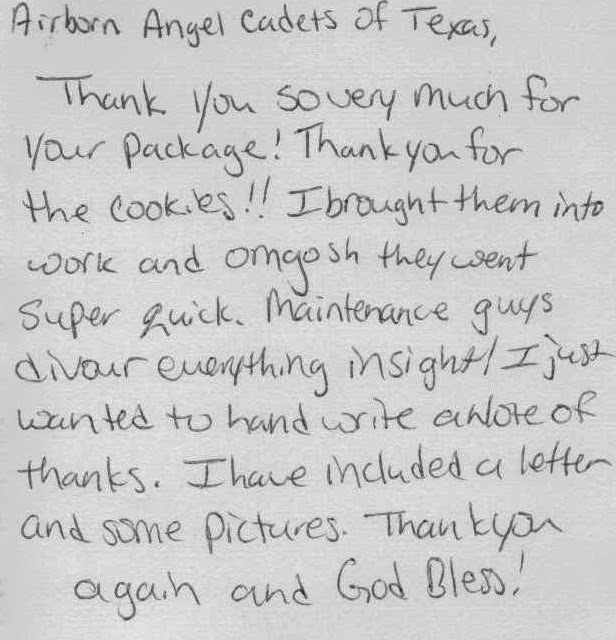 Airborn Angel Cadets of Texas,
Thank you so very much for
your package! Thank you for
the cookies!! I brought them into
work and omgosh they went
super quick. Maintenance guys
divour everything insight! I just
wanted to hand write a note of
thanks. I have included a letter
and some pictures. Thank you
again and God Bless!